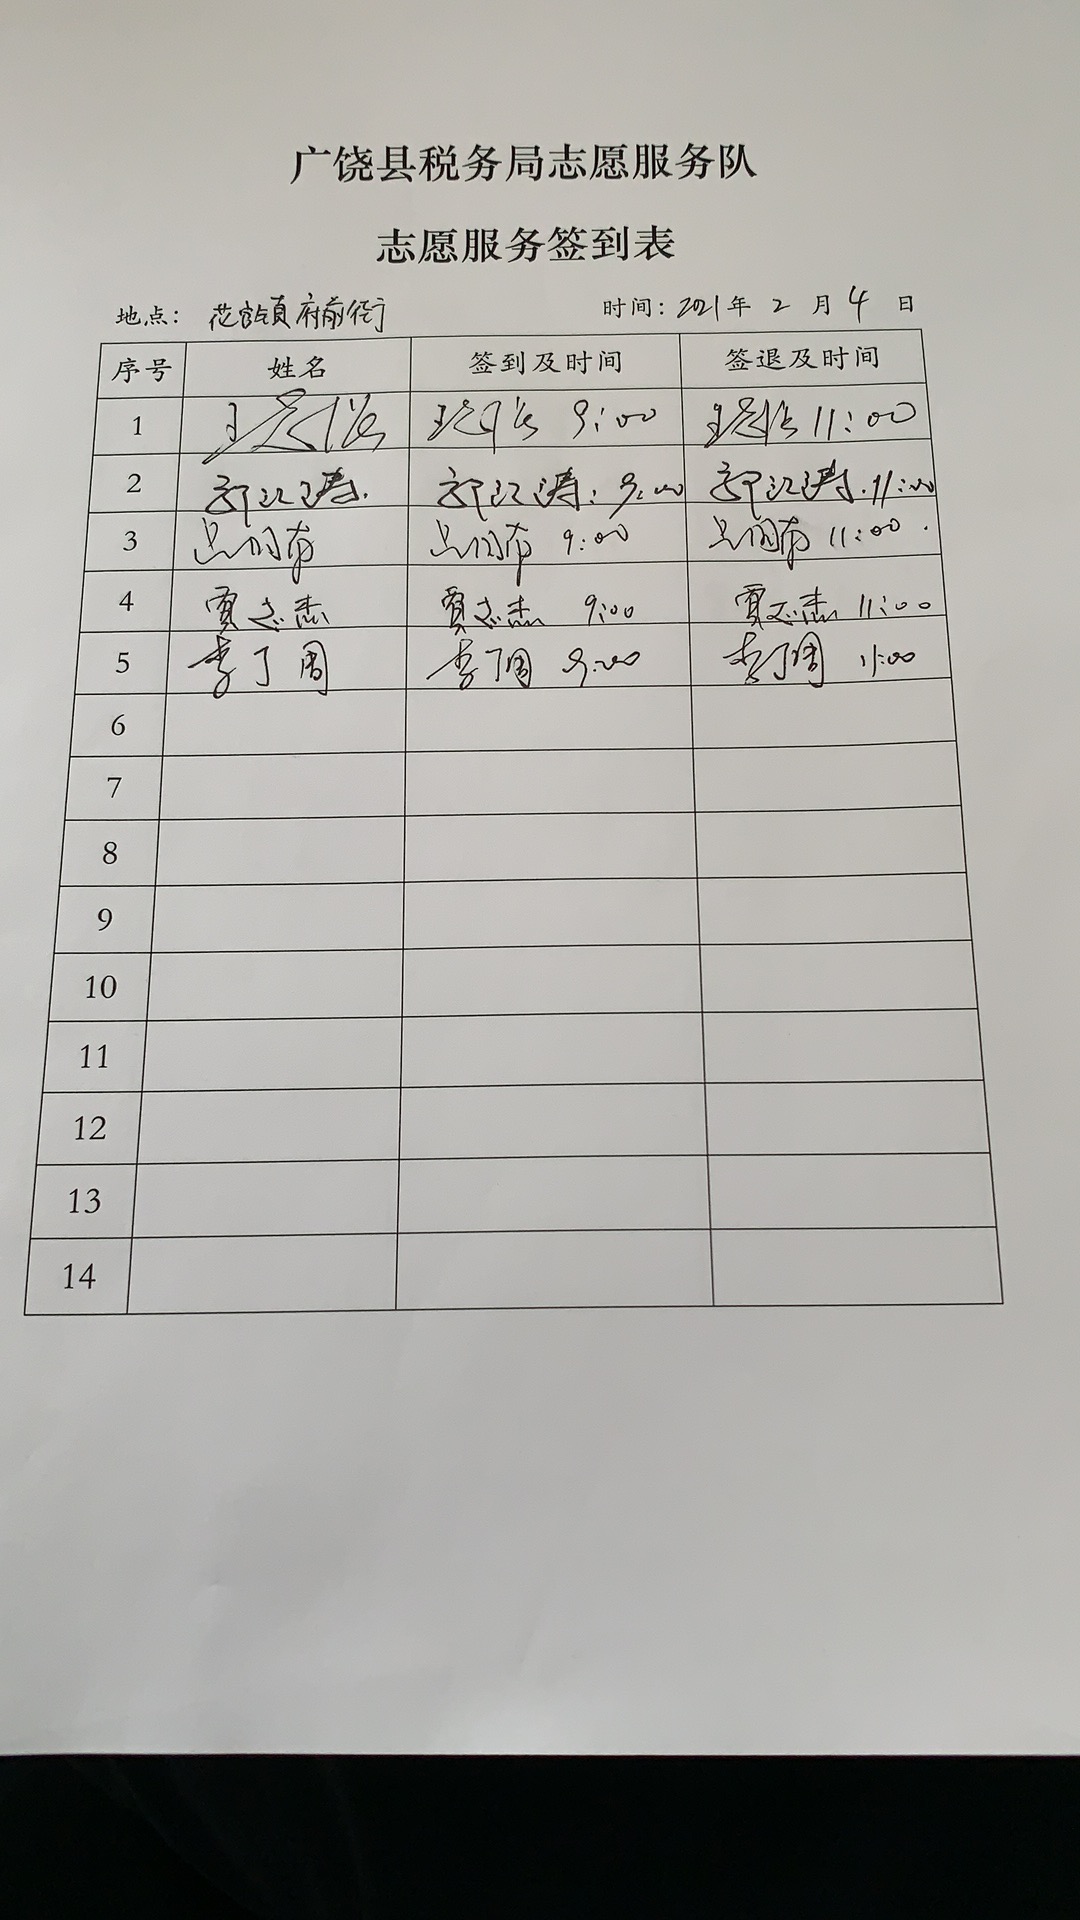 广饶县税务局志愿服务队
志愿服务签到表
地点： 花官镇府前街 时间：2021年 2 月 4 日
序号 姓名 签到及时间 签退及时间
1 9:00 11:00
2 郭江涛. 郭江涛: 9:00 郭江涛.11:00
3 9:00 11:00
4 贾志杰 贾志杰 9:00 贾志杰 11:00
5 李丁周 李丁周 9:00 李丁周 11:00
6
7
8
9
10
11
12
13
14